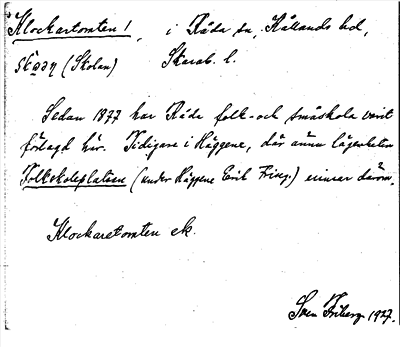 Klockartomten 1, i Råda sn, Kållands hd,
(Skolan) Skarab. l.
Sedan 1877 har Råda folk- och småskola varit
förlagd här. Tidigare i Häggene, där ännu lägenheten
Folkskoleplatsen (under Häggene Erik Frisg.) minner därom.
Klockaretomten ek.
Sven Friberg 1927.